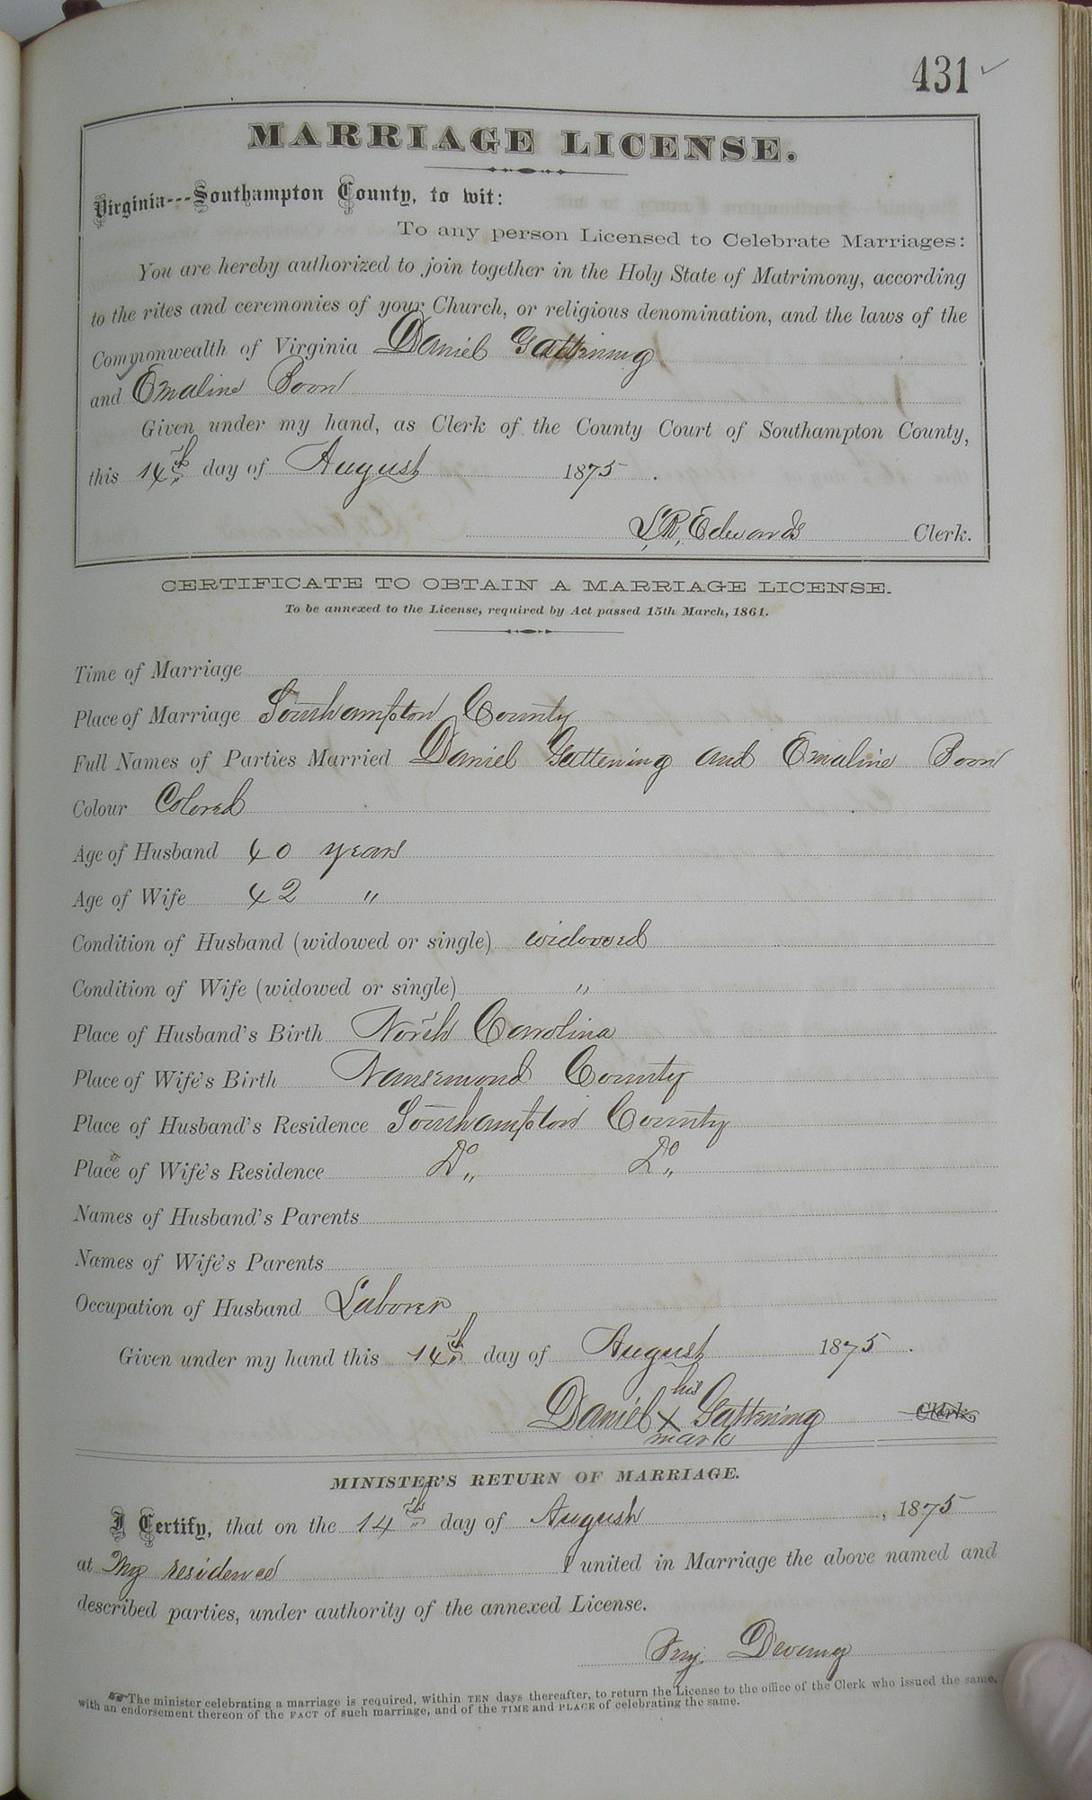 431 ✓
MARRIAGE LICENSE.
Virginia---Southampton County, to wit:
To any person Licensed to Celebrate Marriages:
You are hereby authorized to join together in the Holy State of Matrimony, according
to the rites and ceremonies of your Church, or religious denomination, and the laws of the
Commonwealth of Virginia Daniel Gattening
and Emaline Boon
Given under my hand, as Clerk of the County Court of Southampton County,
this 14th day of August 1875.
L.R. Edwards Clerk.
CERTIFICATE TO OBTAIN A MARRIAGE LICENSE.
To be annexed to the License, required by Act passed 15th March, 1861.
Time of Marriage
Place of Marriage Southampton County
Full Names of Parties Married Daniel Gattening and Emaline Boon
Colour Colored
Age of Husband 40 years
Age of Wife 42 "
Condition of Husband (widowed or single) widowed
Condition of Wife (widowed or single) "
Place of Husband's Birth North Carolina
Place of Wife's Birth Nansemond County
Place of Husband's Residence Southampton County
Place of Wife's Residence Do Do
Names of Husband's Parents
Names of Wife's Parents
Occupation of Husband Laborer
Given under my hand this 14th day of August 1875.
his
Daniel X Gattening Clerk.
mark
MINISTER'S RETURN OF MARRIAGE.
I Certify, that on the 14th day of August, 1875
at My residence I united in Marriage the above named and
described parties, under authority of the annexed License.
The minister celebrating a marriage is required, within TEN days thereafter, to return the License to the office of the Clerk who issued the same,
with an endorsement thereon of the FACT of such marriage, and of the TIME and PLACE of celebrating the same.